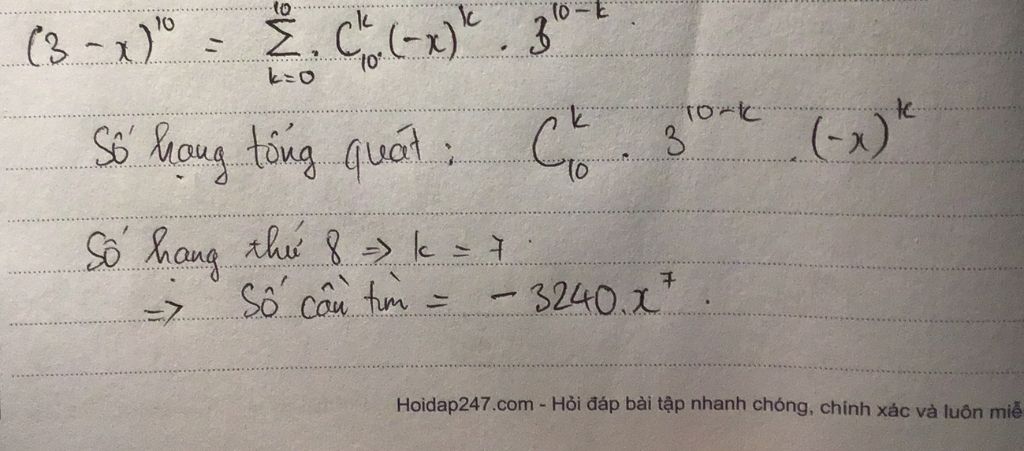 (3 - x)^10 = Σ_{k=0}^{10} . C_{10}^k . (-x)^k . 3^{10-k} .
Số hạng tổng quát : C_{10}^k . 3^{10-k} . (-x)^k
Số hạng thứ 8 => k = 7
=> Số cần tìm = - 3240.x^7 .
Hoidap247.com - Hỏi đáp bài tập nhanh chóng, chính xác và luôn miễ